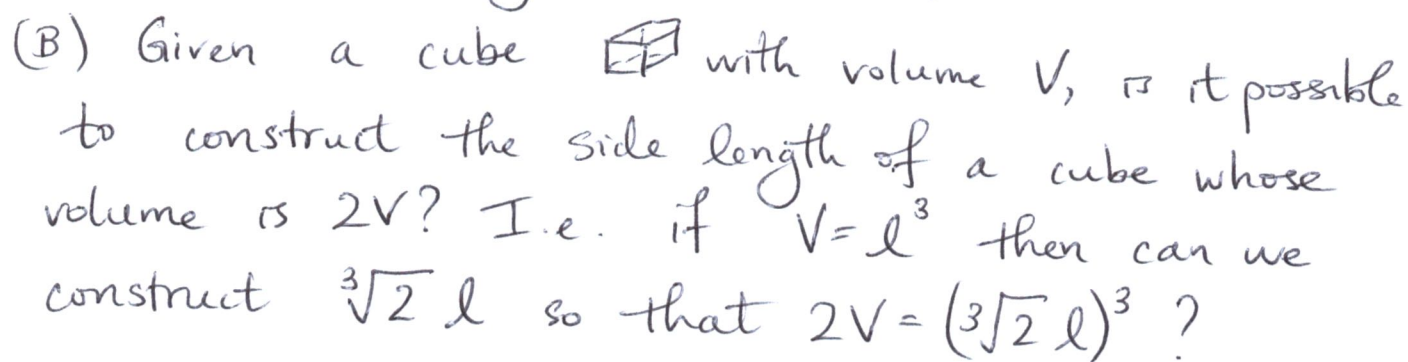 (B) Given a cube with volume V, is it possible
to construct the side length of a cube whose
volume is 2V? I.e. if V=l³ then can we
construct ∛2 l so that 2V=(∛2 l)³ ?